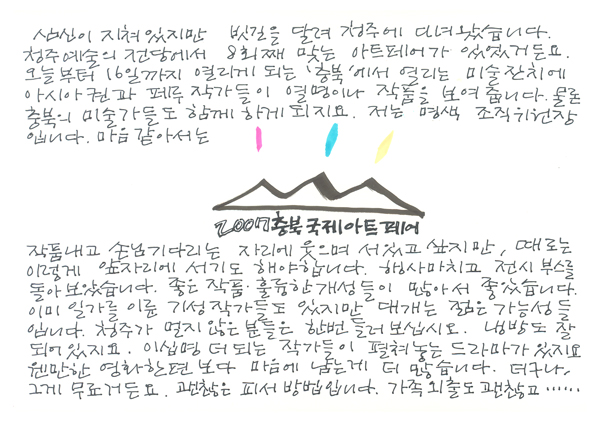 심신이 지쳐있지만 빗길을 달려 청주에 다녀왔습니다.
청주예술의 전당에서 8회째 맞는 아트페어가 있었거든요.
오늘부터 16일까지 열리게 되는 '충북'에서 열리는 미술잔치에
아시아권과 페루 작가들이 열명이나 작품을 보여줍니다. 물론
충북의 미술가들도 함께 하게 되지요. 저는 명색 조직위원장
입니다. 마음 같아서는
2007 충북국제아트페어
작품내고 손님기다리는 자리에 웃으며 서있고 싶지만, 때로는
이렇게 앞자리에 서기도 해야합니다. 행사마치고 전시 부스를
돌아보았습니다. 좋은 작품·훌륭한 개성들이 많아서 좋았습니다.
이미 일가를 이룬 기성작가들도 있지만 대개는 젊은 가능성들
입니다. 청주가 멀지 않은 분들은 한번 들러 보십시요. 냉방도 잘
되어 있지요. 이십명 더 되는 작가들이 펼쳐놓는 드라마가 있지요
웬만한 영화한편 보다 마음에 남는게 더 많습니다. 더구나,
그게 무료거든요. 괜찮은 피서 방법입니다. 가족외출도 괜찮고……